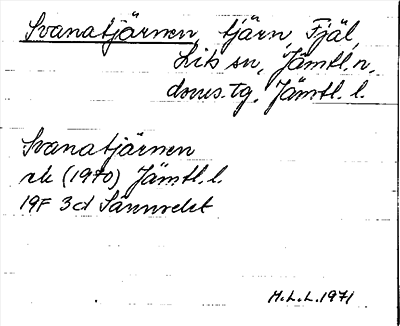 Svanatjärnen, tjärn, Fjäl,
Lits sn, Jämtl. n.
doms.tg. Jämtl. l.
Svanatjärnen
ek (1970) Jämtl. l.
19F 3d Sännvelet
M.L.L. 1971